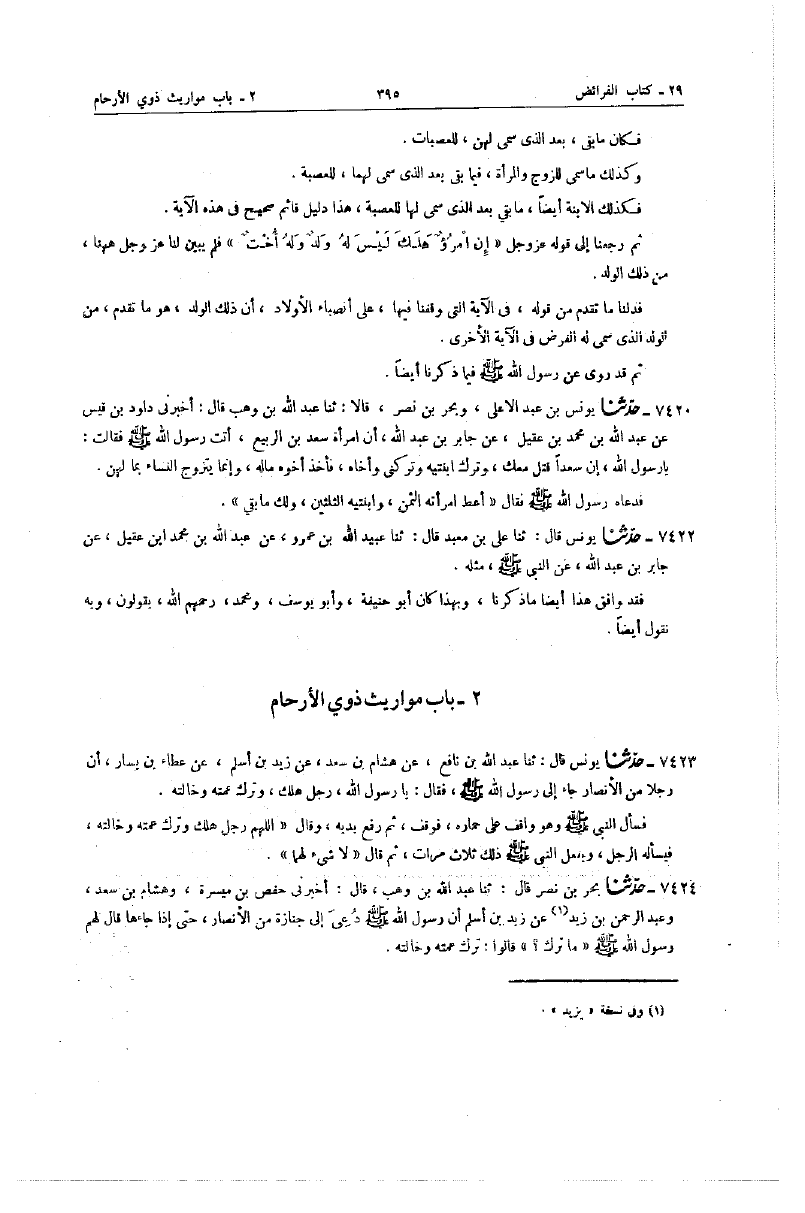 ٢٩ ـ كتاب الفرائض ٣٩٥ ٢ ـ باب مواريث ذوي الأرحام
فكان مابقى ، بعد الذى سمى لهن ، للعصبات .
وكذلك ماسمى للزوج والمرأة ، فما بقى بعد الذى سمى لهما ، للعصبة .
فكذلك الابنة أيضاً ، مابقى بعد الذى سمى لها للعصبة ، هذا دليل قائم صحيح فى هذه الآية .
ثم رجعنا إلى قوله عزوجل « إِنِ امْرُؤٌ هَلَكَ لَيْسَ لَهُ وَلَدٌ وَلَهُ أُخْتٌ » فلم يبين لنا عز وجل ههنا ،
من ذلك الولد .
فدلنا ما تقدم من قوله ، فى الآية التى وقفنا فيها ، على أنصباء الأولاد ، أن ذلك الولد ، هو ما تقدم ، من
الولد الذى سمى له الفرض فى الآية الأخرى .
ثم قد روى عن رسول الله ﷺ فيما ذكرنا أيضاً .
٧٤٢٠ ـ حدّثنا يونس بن عبد الاعلى ، وبحر بن نصر ، قالا : ثنا عبد الله بن وهب قال : أخبرنى داود بن قيس
عن عبد الله بن محمد بن عقيل ، عن جابر بن عبد الله ، أن امرأة سعد بن الربيع ، أتت رسول الله ﷺ فقالت :
يارسول الله ، إن سعداً قتل معك ، وترك ابنتيه وتركنى وأخاه ، فأخذ أخوه ماله ، وإنما يتزوج النساء بما لهن .
فدعاه رسول الله ﷺ فقال « أعط امرأته الثمن ، وابنتيه الثلثين ، ولك مابقى » .
٧٤٢٢ ـ حدّثنا يونس قال : ثنا على بن معبد قال : ثنا عبيد الله بن عمرو ، عن عبد الله بن محمد ابن عقيل ، عن
جابر بن عبد الله ، عن النبى ﷺ ، مثله .
فقد وافق هذا أيضا ماذكرنا ، وبهذا كان أبو حنيفة ، وأبو يوسف ، ومحمد ، رحمهم الله ، يقولون ، وبه
نقول أيضاً .
٢ ـ باب مواريث ذوي الأرحام
٧٤٢٣ ـ حدّثنا يونس قال : ثنا عبد الله بن نافع ، عن هشام بن سعد ، عن زيد بن أسلم ، عن عطاء بن يسار ، أن
رجلا من الأنصار جاء إلى رسول الله ﷺ ، فقال : يا رسول الله ، رجل هلك ، وترك عمته وخالته .
فسأل النبى ﷺ وهو واقف على حماره ، فوقف ، ثم رفع يديه ، وقال « اللهم رجل هلك وترك عمته وخالته ،
فيسأله الرجل ، ويفعل النبى ﷺ ذلك ثلاث مرات ، ثم قال « لا شىء لهما » .
٧٤٢٤ ـ حدّثنا بحر بن نصر قال : ثنا عبد الله بن وهب ، قال : أخبرنى حفص بن ميسرة ، وهشام بن سعد ،
وعبد الرحمن بن زيد(١) عن زيد بن أسلم أن رسول الله ﷺ دُعِىَ إلى جنازة من الأنصار ، حتى إذا جاءها قال لهم
رسول الله ﷺ « ما ترك ؟ » قالوا : ترك عمته وخالته .
(١) وفى نسخة « يزيد » .